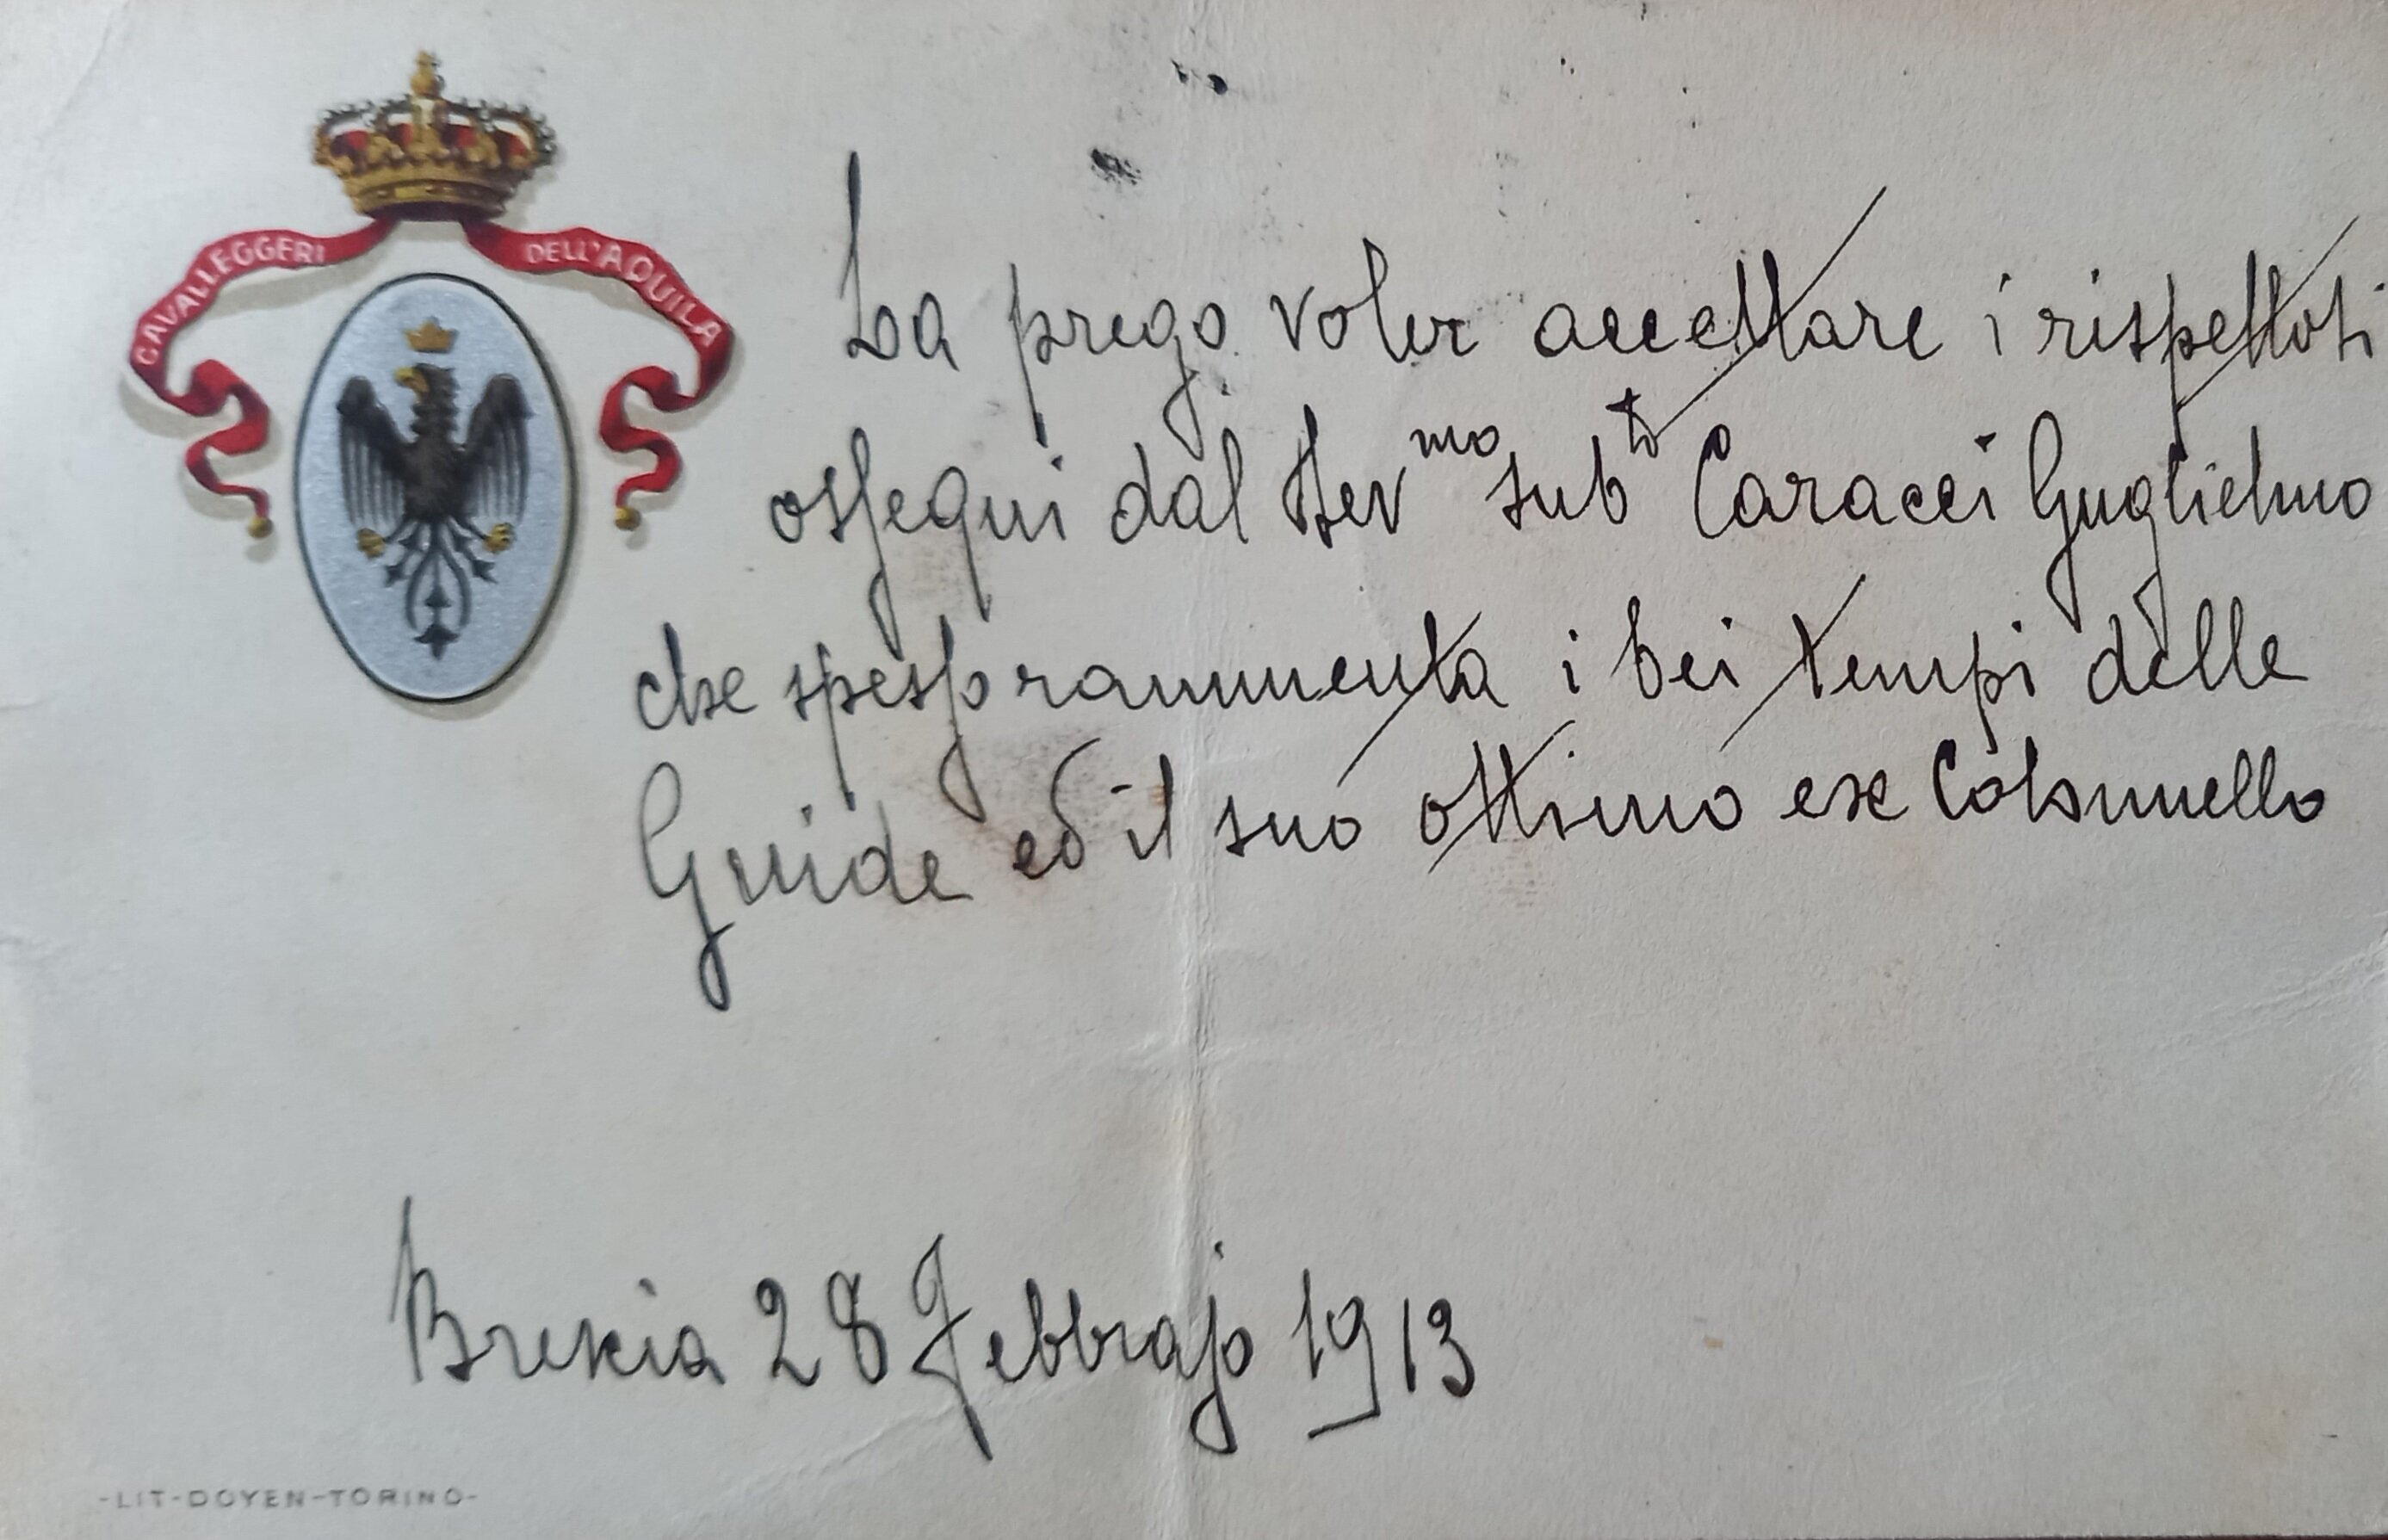 CAVALLEGGERI DELL'AQUILA
La prego voler accettare i rispettosi
ossequi dal Dev mo sub to Caracci Guglielmo
che spesso rammenta i bei tempi delle
Guide ed il suo ottimo ex Colonnello
Brescia 28 Febbrajo 1913
-LIT-DOYEN-TORINO-